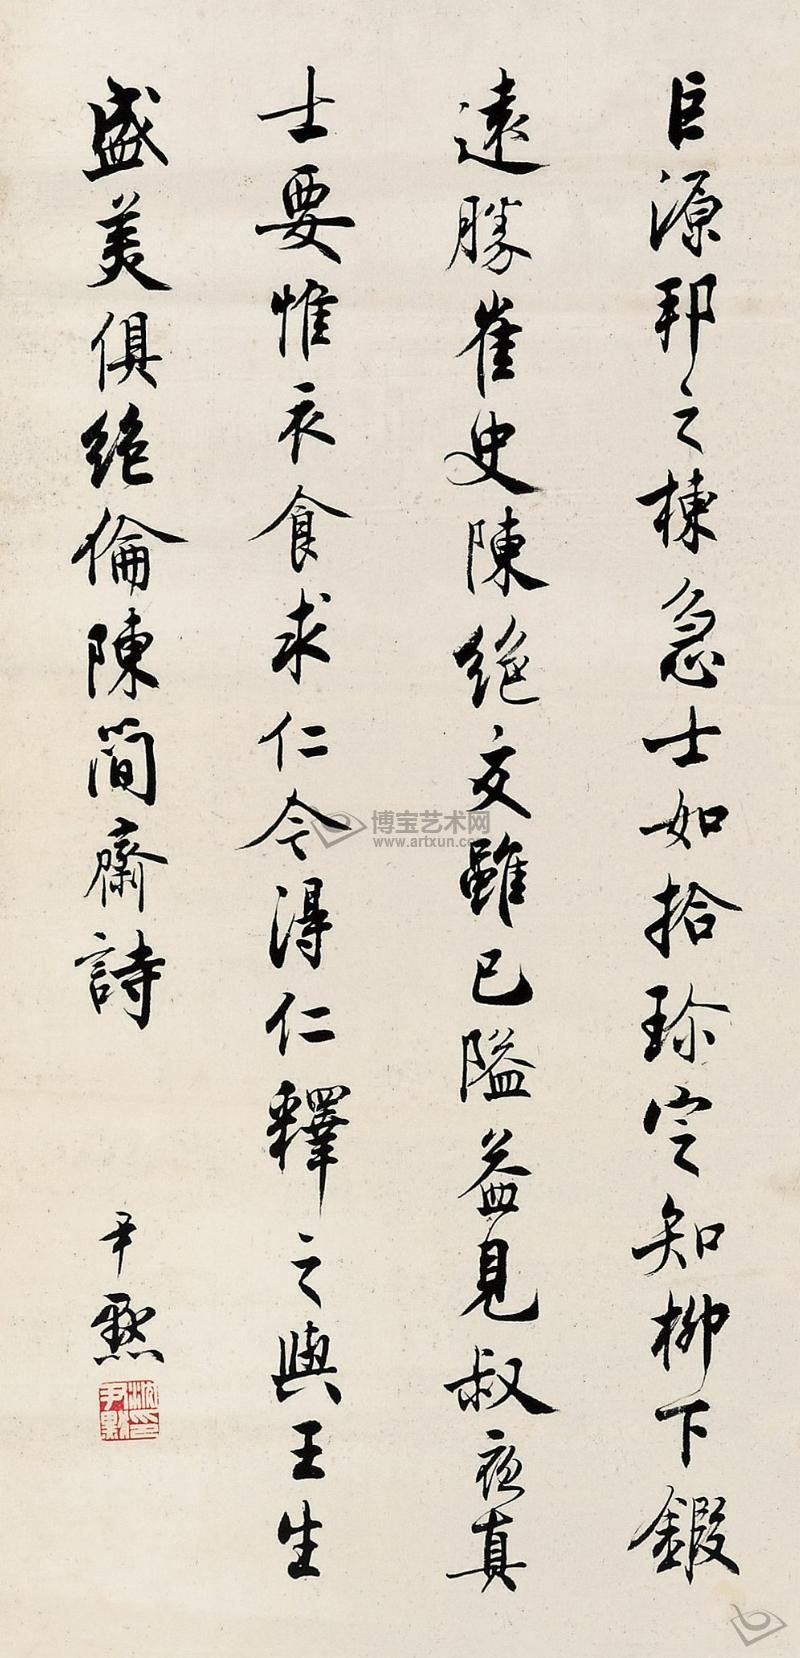 巨源邦之棟急士如拾珍定知柳下鍛
遠勝崔史陳絕交雖已隘益見叔夜真
士要惟衣食求仁今得仁釋之與王生
盛美俱絕倫陳簡齋詩
尹默
沈尹默印
博宝艺术网
www.artxun.com